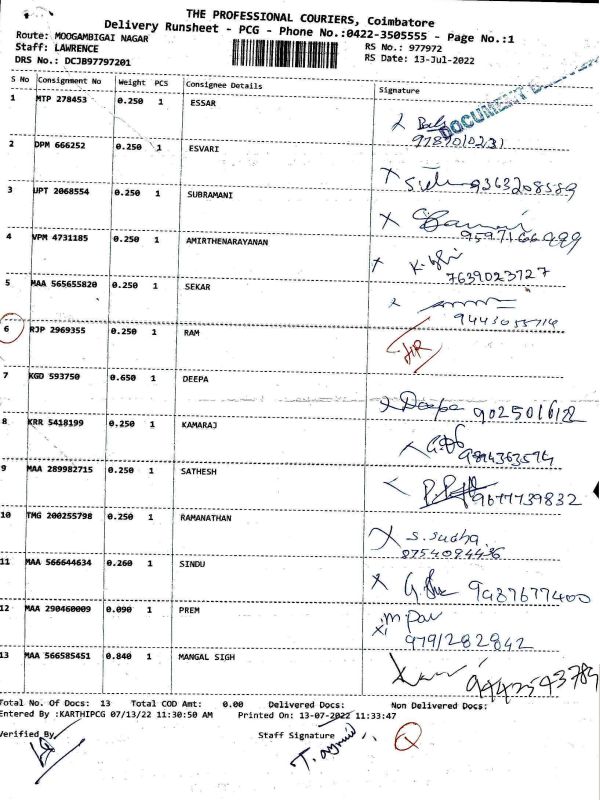 THE PROFESSIONAL COURIERS, Coimbatore
Delivery Runsheet - PCG - Phone No.:0422-3505555 - Page No.:1
Route: MOOGAMBIGAI NAGAR
RS No.: 977972
Staff: LAWRENCE
RS Date: 13-Jul-2022
DRS No.: DCJB97797201
S No Consignment No Weight PCS Consignee Details Signature
DOCUMENT
1 MTP 278453 0.250 1 ESSAR
2 DPM 666252 0.250 1 ESVARI
9363208589
3 JPT 2068554 0.250 1 SUBRAMANI
9597166499
4 VPM 4731185 0.250 1 AMIRTHENARAYANAN
7639023727
5 MAA 565655820 0.250 1 SEKAR
6 RJP 2969355 0.250 1 RAM
7 KGD 593750 0.650 1 DEEPA
Deepa
8 KRR 5418199 0.250 1 KAMARAJ
9 MAA 289982715 0.250 1 SATHESH
9677739832
10 TMG 200255798 0.250 1 RAMANATHAN
S. Sudha
8754094436
11 MAA 566644634 0.260 1 SINDU
9487677400
12 MAA 290460009 0.090 1 PREM
9791282842
13 MAA 566585451 0.840 1 MANGAL SIGH
Total No. Of Docs: 13 Total COD Amt: 0.00 Delivered Docs: Non Delivered Docs:
Entered By :KARTHIPCG 07/13/22 11:30:50 AM Printed On: 13-07-2022 11:33:47
Verified By Staff Signature